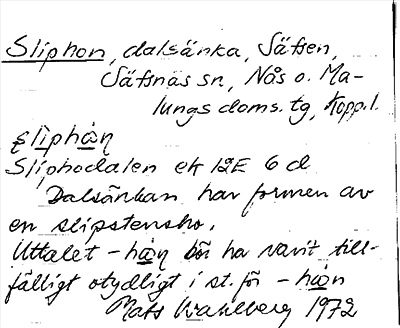 Sliphon, dalsänka, Säfsen,
Säfsnäs sn, Nås o. Ma-
lungs doms. tg, Kopp.l.
slìphàn
Sliphodalen ek 12E 6 d
Dalsänkan har formen av
en slipstensho.
Uttalet -hàn bör ha varit till-
fälligt otydligt i st. för -hòn
Mats Wahlberg 1972